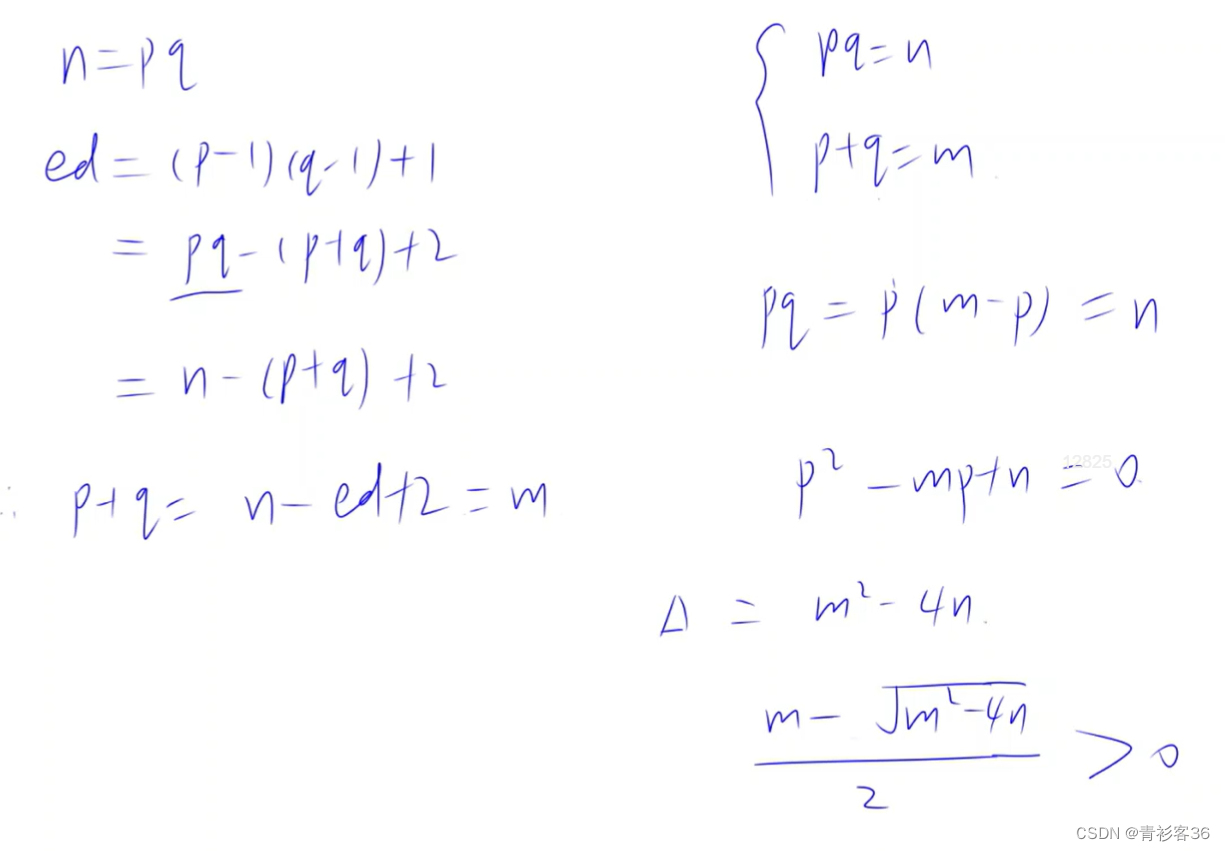 n=pq
ed=(p-1)(q-1)+1
=pq-(p+q)+2
=n-(p+q)+2
∴ p+q= n-ed+2=m
{ pq=n
p+q=m
pq = p(m-p) = n
p²-mp+n=0
12825
Δ = m²-4n.
(m-√(m²-4n))/2 >0
CSDN @青衫客36